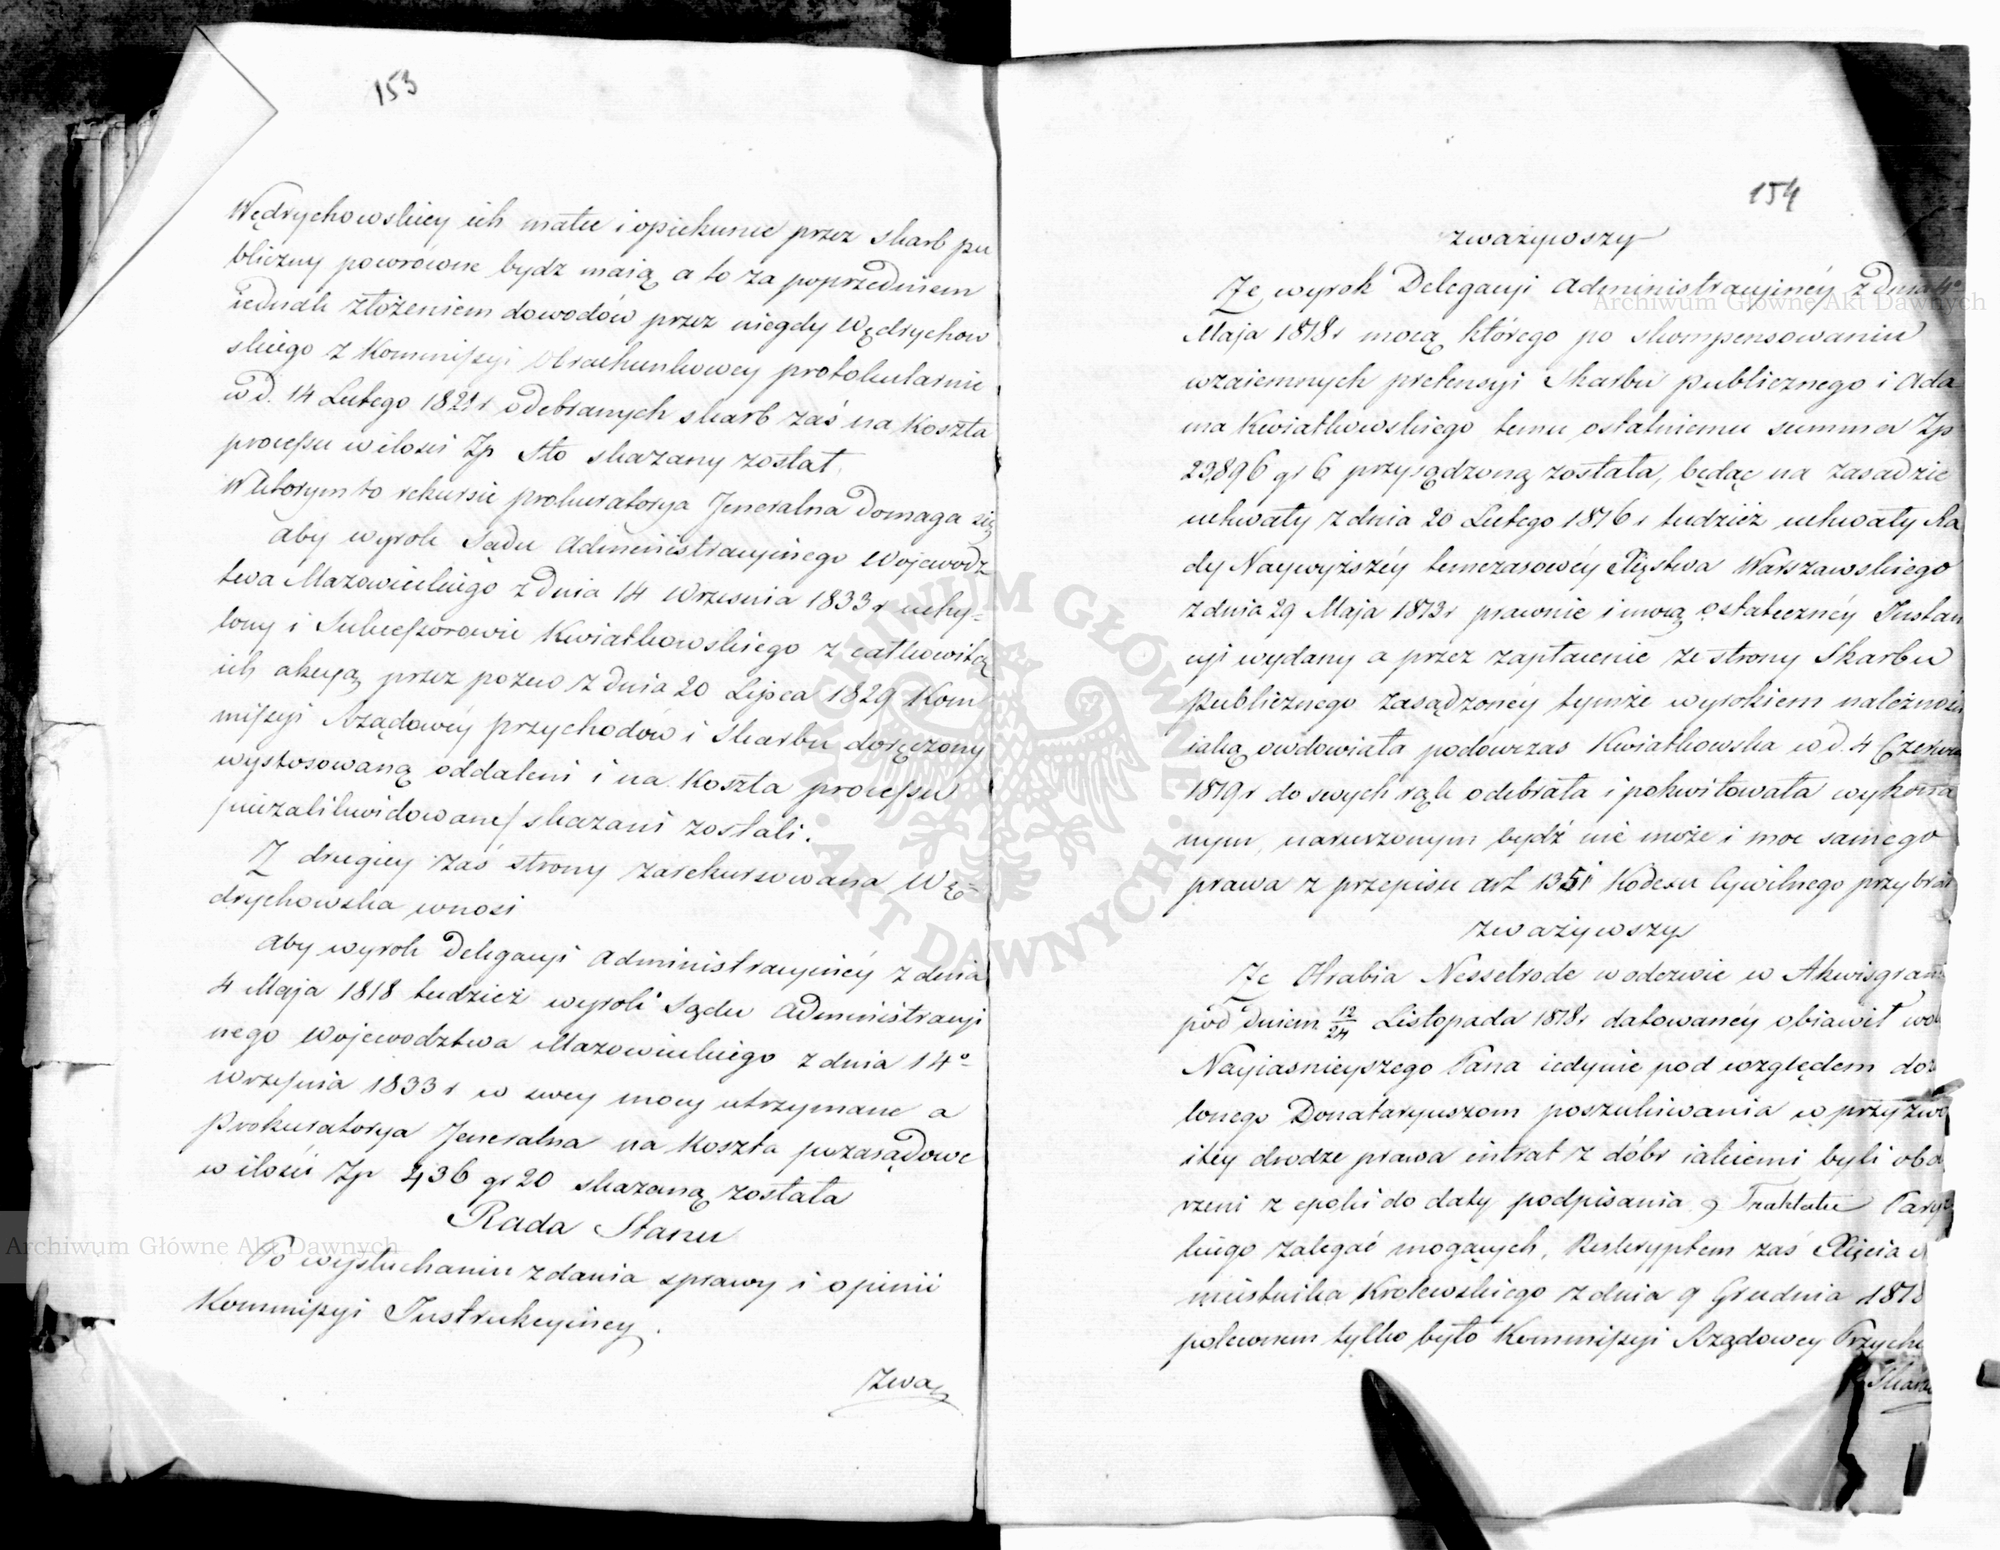 153
Wędrychowskiey ich matce i opiekunce przez skarb pu
bliczny powrócone bydz maią, a to za poprzedniem
iednak złożeniem dowodów przez niegdy Wędrychow
skiego z Kommissyi Obrachunkowey protokularnie
w d. 14 Lutego 1821 r odebranych skarb zaś na Koszta
processu w ilości Zp Sto skazany został.
W którym to rekursie prokuratorya Jeneralna Domaga się
aby wyrok Sądu Administracyinego Wojewodz
twa Mazowieckiego z dnia 14 Września 1833 r uchy=
lony i Sukcessorowie Kwiatkowskiego z całkowitą
ich akcyą przez pozew z dnia 20 Lipca 1829 Kom
missyi Rządowéy przychodów i Skarbu doręczony
wystosowaną oddaleni i na Koszta processu
/niezalikwidowane/ skazani zostali.
Z drugiey zaś strony zarekursowana Wę=
drychowska wnosi
Aby wyrok Delegacyi Administracyinéy z dnia
4 Maja 1818 tudzież wyrok Sądu Administracyi
nego Wojewodztwa Mazowieckiego z dnia 14o
Września 1833 r w swey mocy utrzymane a
Prokuratorya Jeneralna na Koszta pozasądowe
w ilości Zp 436 gr 20 skazaną została
Rada Stanu
Po wysłuchaniu zdania sprawy i opinii
Kommissyi Instrukcyiney.
Zwa
154
zważywszy
Ze wyrok Delegacyi Administracyinéy z Dnia 4o
Maja 1818 r mocą którego po skompensowaniu
wzaiemnych pretensyi Skarbu publicznego i Ada
ma Kwiatkowskiego temu ostatniemu summa Zp
23,896 gr 6 przysądzoną została, będąc na zasadzie
uchwały z dnia 20 Lutego 1816 r tudzież uchwały Ra
dy Naywyższéy temczasowéy Xięstwa Warszawskiego
z dnia 29 Maja 1813 r prawnie i mocą ostatecznéy Instan
cyi wydany a przez zapłacenie ze strony Skarbu
publicznego zasądzonéy tymże wyrokiem należności
iaką owdowiała podówczas Kwiatkowska w d. 4 Czerwca
1819 r do swych rąk odebrała i pokwitowała wykona
nym, naruszonym bydź nie może i moc samego
prawa z przepisu art 1351 Kodexu Cywilnego przybrał
zważywszy
Ze Hrabia Nesselrode w odezwie w Akwisgranie
pod Dniem 12/24 Listopada 1818 r datowanéy obiawił wolę
Nayiasnieyszego Pana iedynie pod względem dozwo
lonego Donataryuszom poszukiwania w przyzwo
itéy drodze prawa intrat z dóbr iakiemi byli obda
rzeni z epoki do daty podpisania Traktatu Paryz
kiego zalegać mogących, Reskryptem zaś Xięcia Na
miestnika Królewskiego z dnia 9 Grudnia 1818
polecone tylko było Kommissyi Rządowey Przycho
Skarbu
Archiwum Główne Akt Dawnych
Archiwum Główne Akt Dawnych
ARCHIWUM GŁÓWNE · AKT DAWNYCH ·